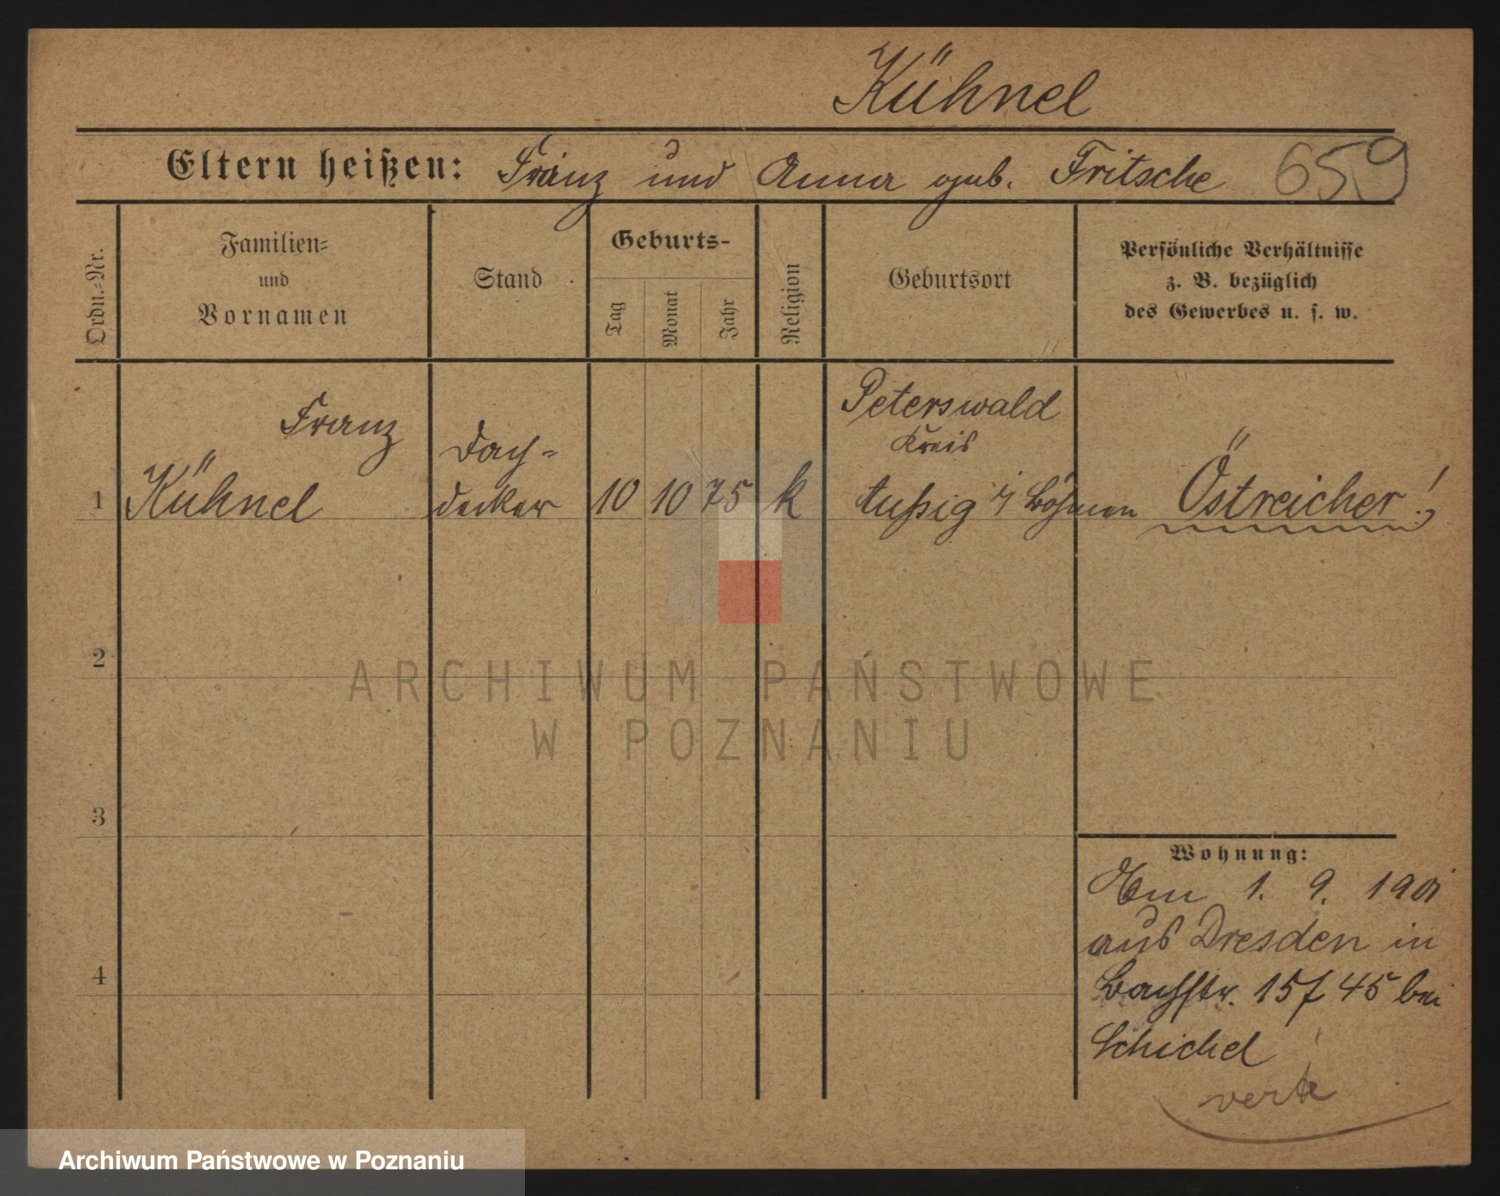 Kühnel
Eltern heißen: Franz und Anna geb. Fritsche 659
Ordn.-Nr.
Familien-
und
Vornamen
Stand
Geburts-
Tag
Monat
Jahr
Religion
Geburtsort
Persönliche Verhältnisse
z. B. bezüglich
des Gewerbes u. s. w.
Franz
1 Kühnel
Dach-
decker
10 10 75 k
Peterswald
Kreis
Außig i/ Böhmen
Östreicher!
2
3
4
ARCHIWUM PAŃSTWOWE
W POZNANIU
Wohnung:
Am 1. 9. 1901
aus Dresden in
Bachstr. 15 f 45 bei
Schichel
Archiwum Państwowe w Poznaniu